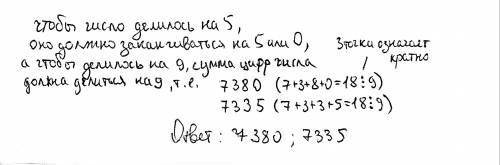 чтобы число делилось на 5,
оно должно заканчиваться на 5 или 0,
а чтобы делилось на 9, сумма цифр числа
должна делиться на 9, т.е.
3 точки означает
кратно
7380 (7+3+8+0=18⋮9)
7335 (7+3+3+5=18⋮9)
Ответ: 7380; 7335